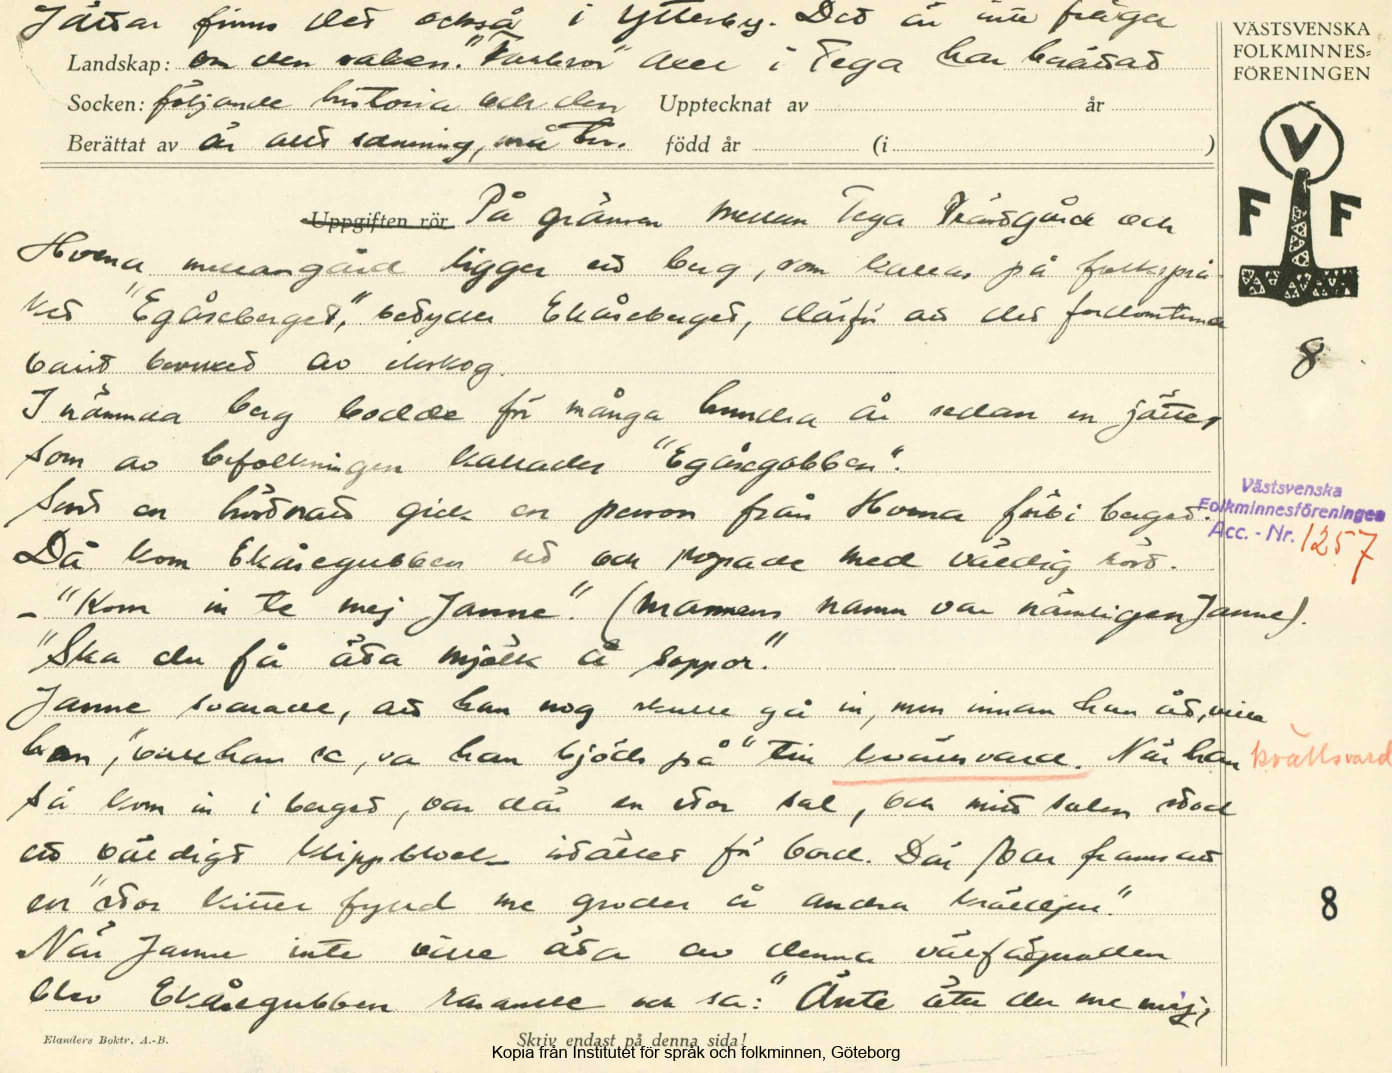 Jättar finns det också i Ytterby. Det är inte fråga
VÄSTSVENSKA
FOLKMINNES=
FÖRENINGEN
Landskap: om den saken. "Farbror" Axel i Tega har berättat
Socken: följande historia och den Upptecknat av år
Berättat av är allt sanning, må tro. född år (i )
V
F F
Uppgiften rör På gränsen mellan Tega Prästgård och
Hovna mellangård ligger ett berg, som kallas på folksprå-
ket "Egåseberget," betyder Ekåseberget, därför att det fordomtima
varit bevuxet av ekskog.
8
I nämnda berg bodde för många hundra år sedan en jätte,
som av befolkningen kallades "Egåsegobben".
Sent en höstnatt gick en person från Hovna förbi berget.
Västsvenska
Folkminnesföreningen
Acc. - Nr. 1257
Då kom Ekåsegubben ut och ropade med väldig röst.
- "Kom in te mej Janne". (Mannens namn var nämligen Janne).
"Ska du få äta mjölk å soppor."
Janne svarade, att han nog skulle gå in, men innan han åt, ville
han, "ville han se, va han bjöds på" tin kvällsvard. När han
kvällsvard
så kom in i berget, var där en stor sal, och mitt salen stod
ett väldigt klippblock istället för bord. Där var framsatt
en "stor kittel fylld me grodor å andra kräldjur."
8
När Janne inte ville äta av denna välfägnaden
blev Ekåsegubben rasande och sa: "Änte äter du me mej,
Elanders Boktr. A.-B.
Skriv endast på denna sida!
Kopia från Institutet för språk och folkminnen, Göteborg